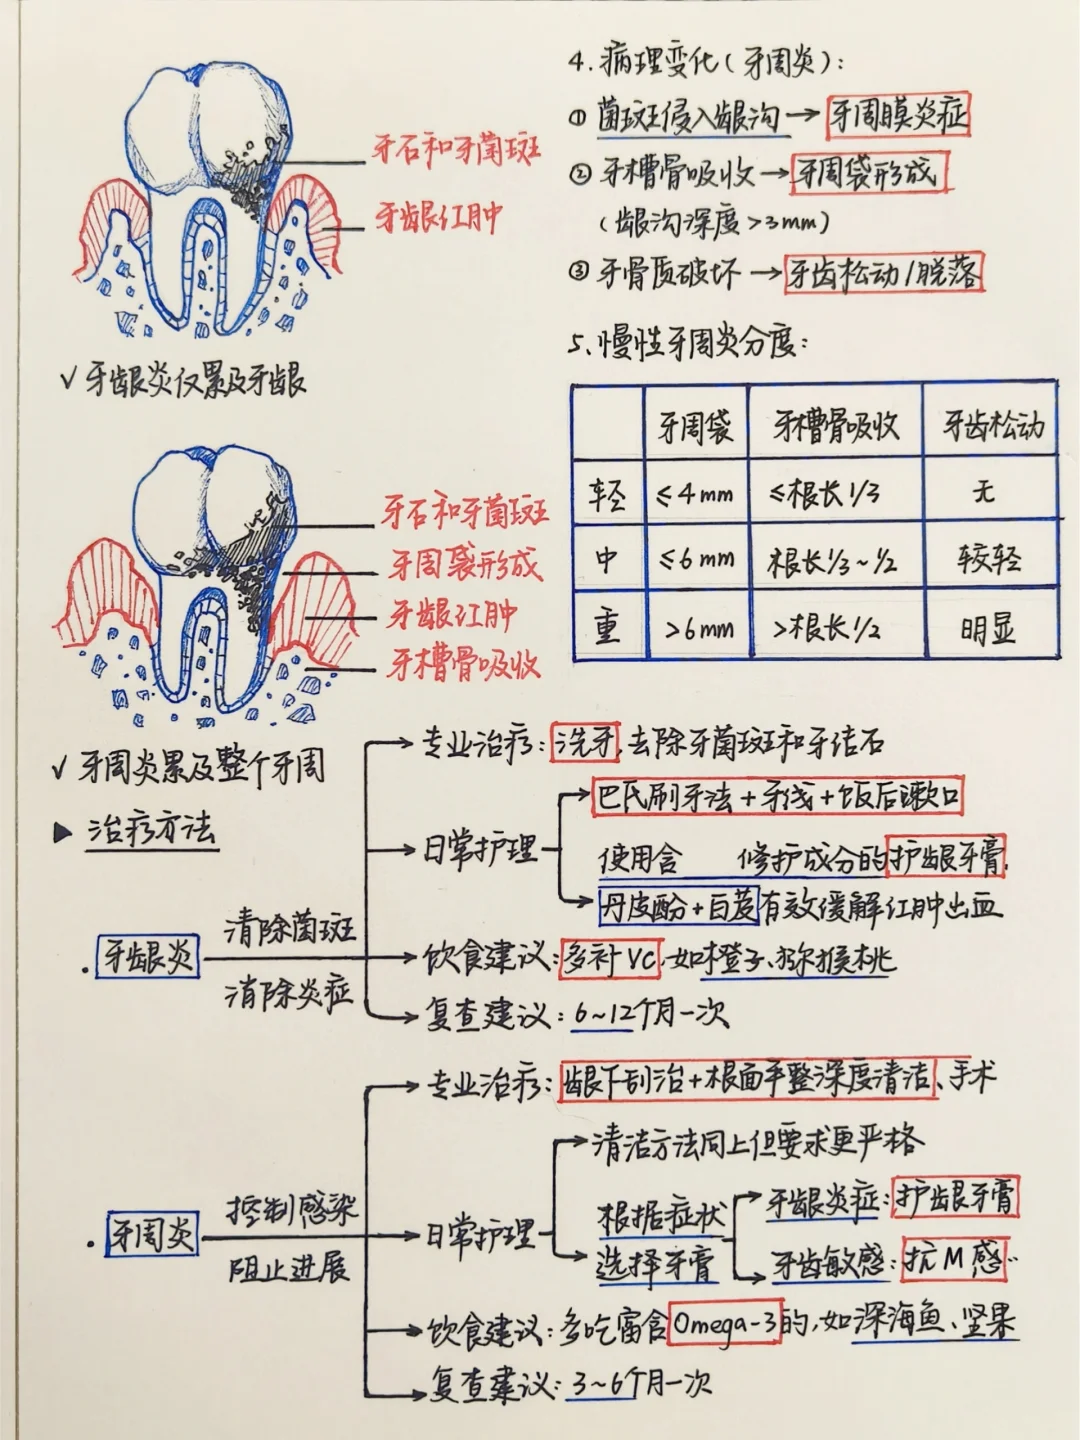 牙石和牙菌斑
牙龈红肿
✓ 牙龈炎仅累及牙龈
牙石和牙菌斑
牙周袋形成
牙龈红肿
牙槽骨吸收
✓ 牙周炎累及整个牙周
4. 病理变化(牙周炎):
① 菌斑侵入龈沟→牙周膜炎症
② 牙槽骨吸收→牙周袋形成
(龈沟深度>3mm)
③ 牙骨质破坏→牙齿松动/脱落
5、慢性牙周炎分度:
牙周袋 牙槽骨吸收 牙齿松动
轻 ≤4mm ≤根长1/3 无
中 ≤6mm 根长1/3~1/2 较轻
重 >6mm >根长1/2 明显
▶ 治疗方法
·牙龈炎
清除菌斑
消除炎症
专业治疗:洗牙,去除牙菌斑和牙结石
日常护理
巴氏刷牙法+牙线+饭后漱口
使用含 修护成分的护龈牙膏,
丹皮酚+白芨有效缓解红肿出血
饮食建议:多补VC,如橙子、猕猴桃
复查建议:6~12个月一次
·牙周炎
控制感染
阻止进展
专业治疗:龈下刮治+根面平整深度清洁、手术
日常护理
清洁方法同上但要求更严格
根据症状
选择牙膏
牙龈炎症:护龈牙膏
牙齿敏感:抗M感..
饮食建议:多吃富含Omega-3的,如深海鱼、坚果
复查建议:3~6个月一次